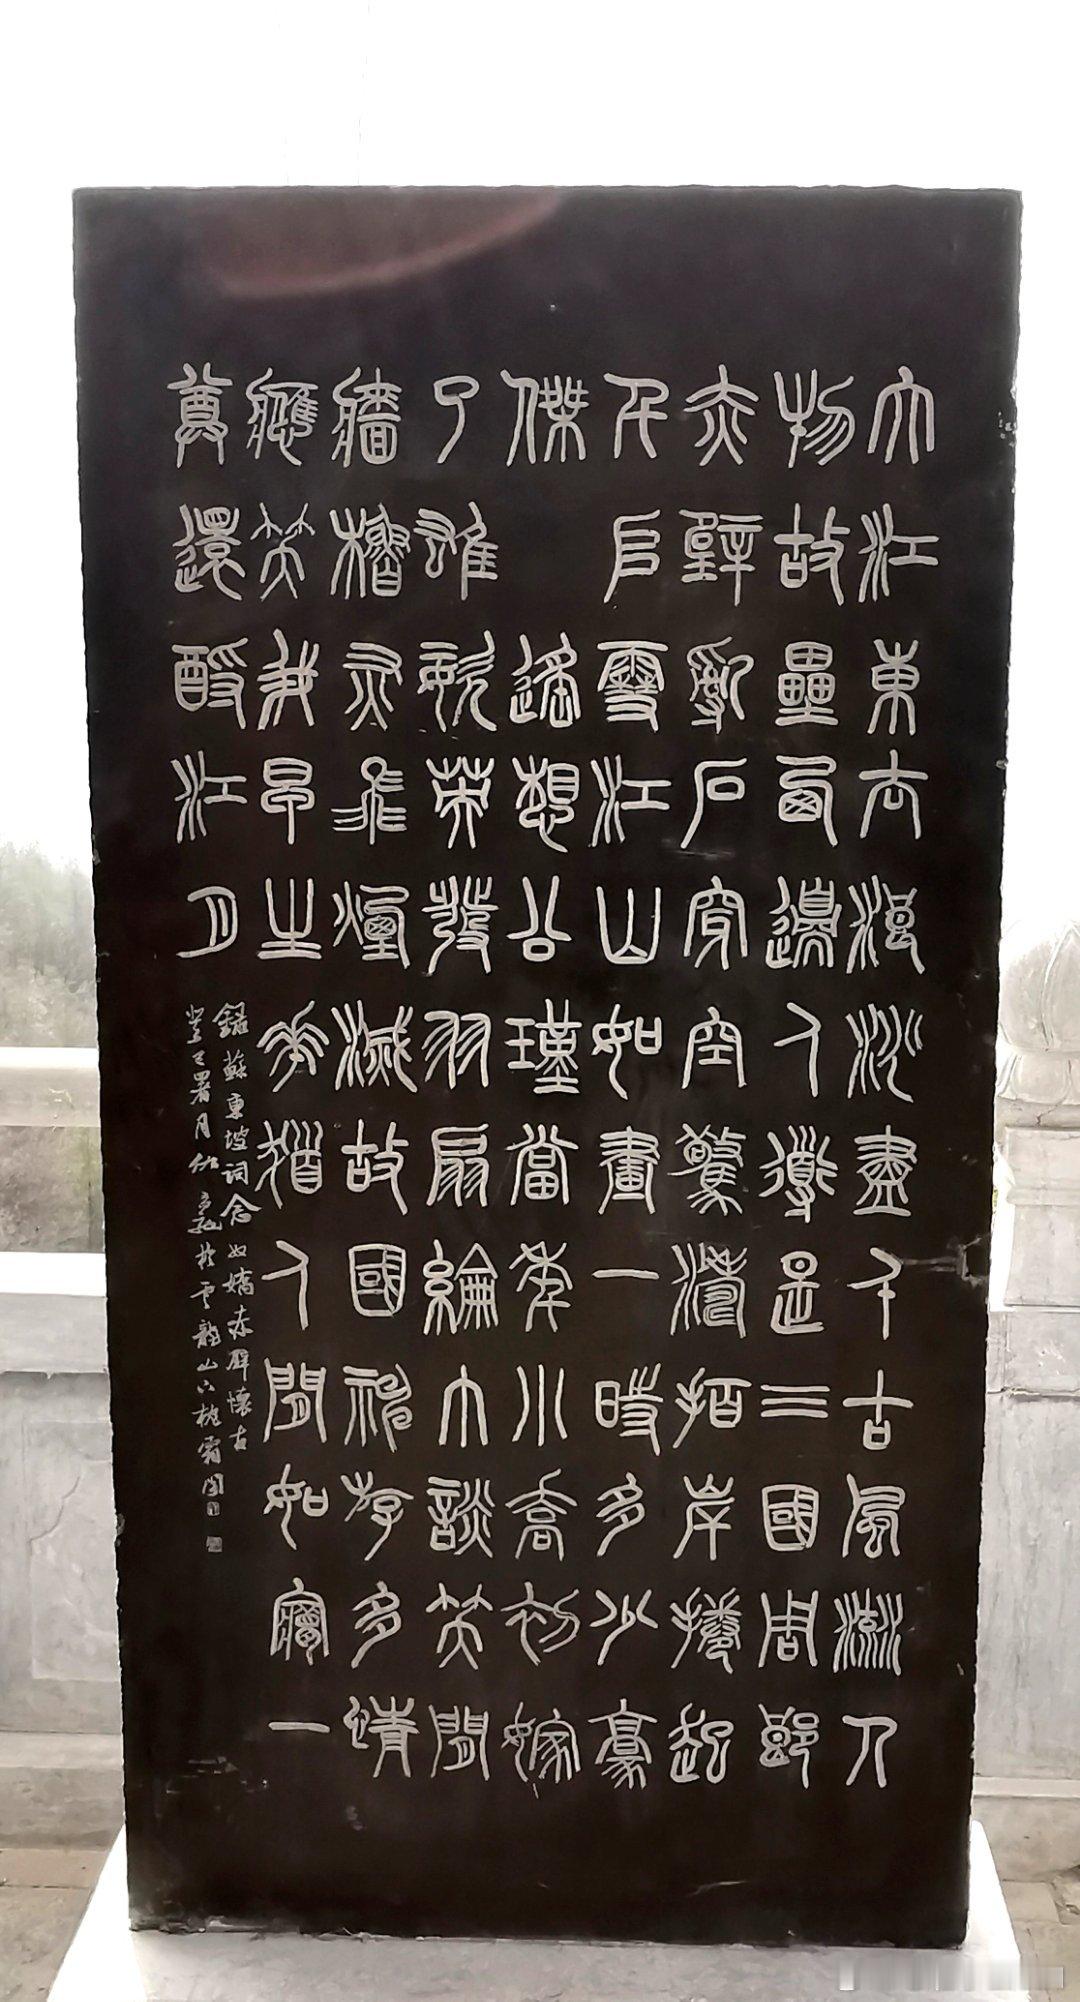 大江東去浪淘盡千古風流人
物故壘西邊人道是三國周郎
赤壁亂石穿空驚濤拍岸捲起
千堆雪江山如畫一時多少豪
傑 遙想公瑾當年小喬初嫁
了雄姿英發羽扇綸巾談笑間
檣櫓灰飛煙滅故國神游多情
應笑我早生華髮人間如夢一
尊還酹江月
錄蘇東坡詞念奴嬌赤壁懷古
癸巳暑月於雲龍山下